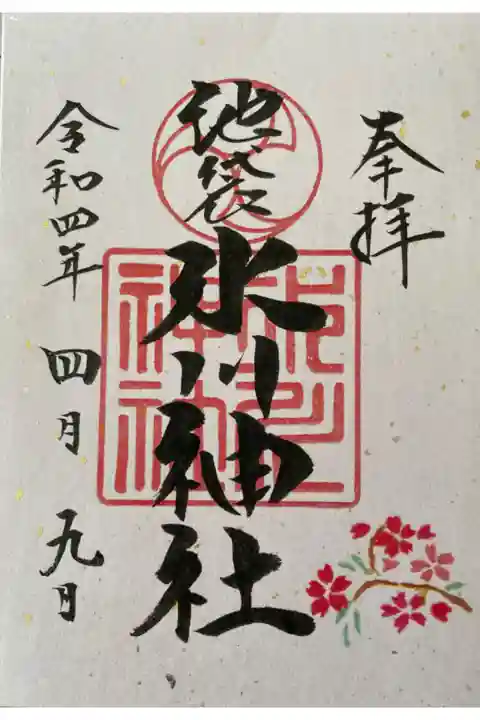 奉拝
池袋
氷川神社
氷川
神社
令和四年
四月
九日